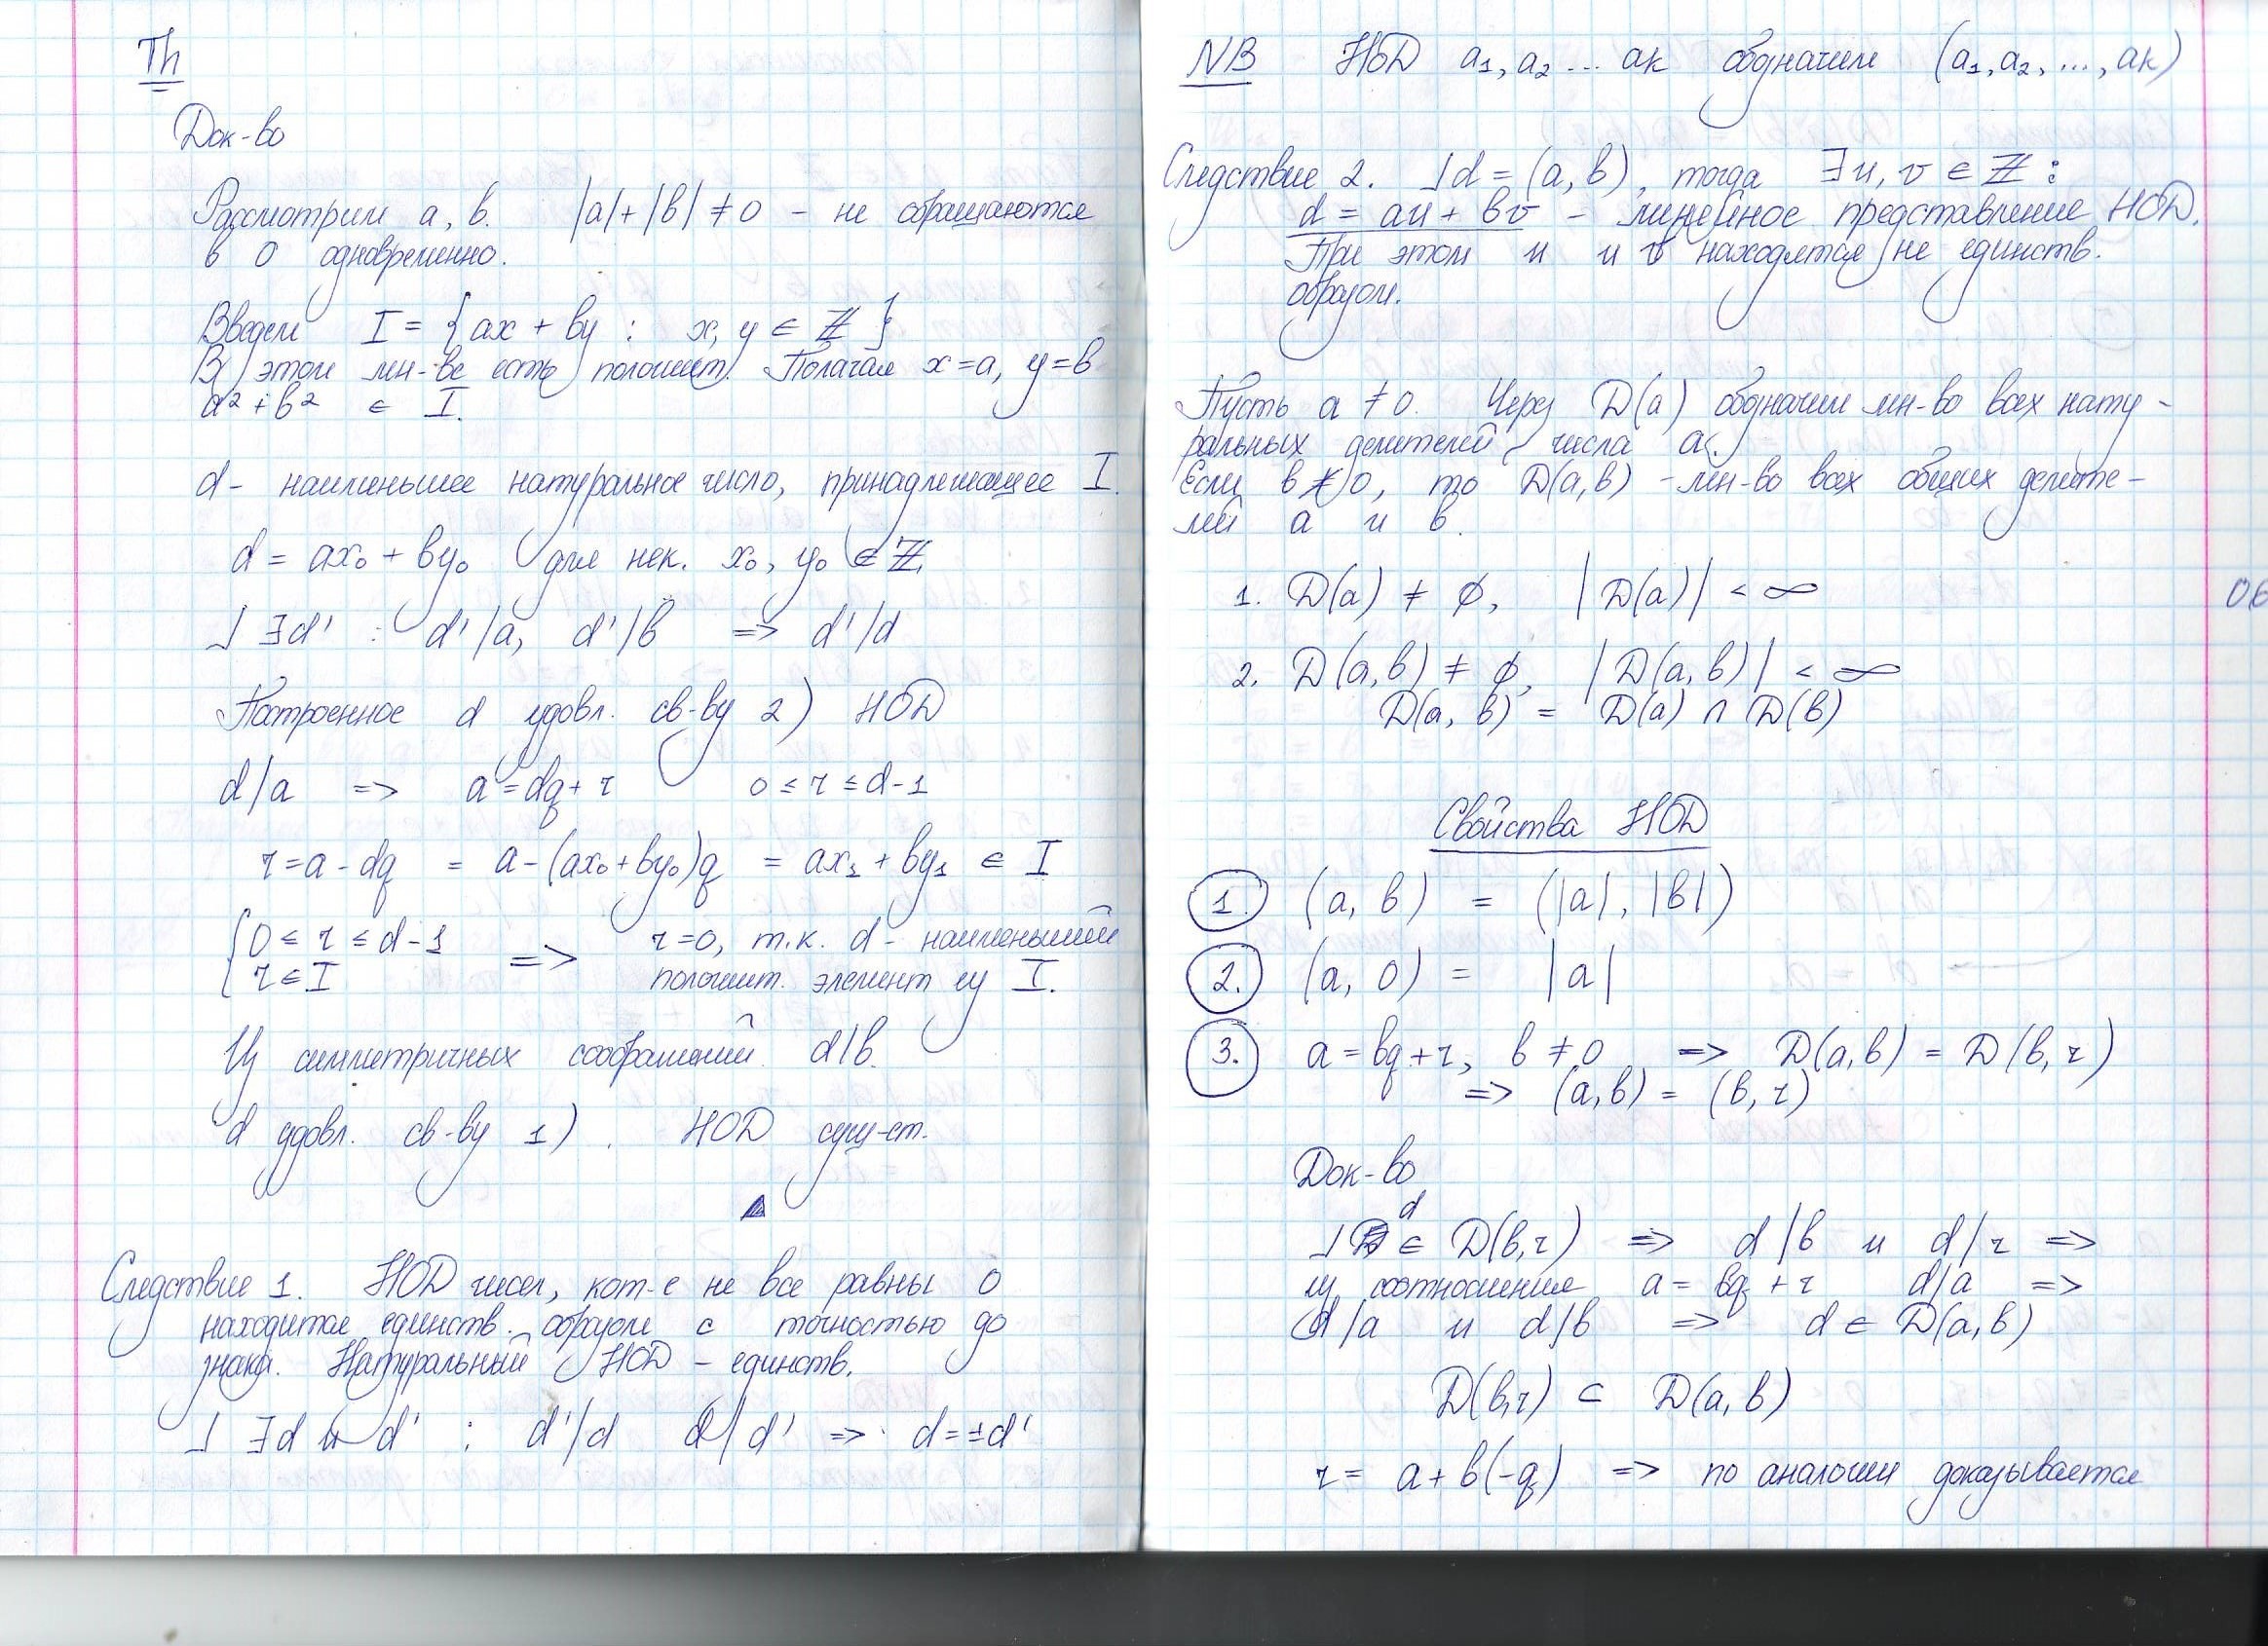 Th
Док-во
Рассмотрим a, b. |a|+|b| ≠ 0 - не обращаются
в 0 одновременно.
Введем I = { ax + by : x, y ∈ ℤ }
В этом мн-ве есть положит. Полагая x=a, y=b
a² + b² ∈ I.
d - наименьшее натуральное число, принадлежащее I.
d = ax₀ + by₀ для нек. x₀, y₀ ∈ ℤ.
⅃ ∃d' : d'/a, d'/b => d'/d
Построенное d удовл. св-ву 2) НОД
d/a => a = dq + r 0 ≤ r ≤ d-1
r = a - dq = a - (ax₀ + by₀)q = ax₁ + by₁ ∈ I
{ 0 ≤ r ≤ d-1
r ∈ I => r=0, т.к. d - наименьший
положит. элемент из I.
Из симметричных соображений d/b.
d удовл. св-ву 1). НОД сущ-ет.
Следствие 1. НОД чисел, кот-е не все равны 0
находится единств. образом с точностью до
знака. Натуральный НОД - единств.
⅃ ∃d и d' : d'/d d/d' => d=±d'
NB НОД a₁, a₂ ... aк обозначим (a₁, a₂, ..., aк)
Следствие 2. ⅃ d = (a, b), тогда ∃ u, v ∈ ℤ :
d = au + bv - линейное представление НОД.
При этом u и v находятся не единств.
образом.
Пусть a ≠ 0. Через D(a) обозначим мн-во всех нату-
ральных делителей числа a.
Если b ≠ 0, то D(a, b) - мн-во всех общих делите-
лей a и b.
1. D(a) ≠ ∅, |D(a)| < ∞
2. D(a, b) ≠ ∅, |D(a, b)| < ∞
D(a, b) = D(a) ∩ D(b)
06
Свойства НОД
1. (a, b) = (|a|, |b|)
2. (a, 0) = |a|
3. a = bq + r, b ≠ 0 => D(a, b) = D(b, r)
=> (a, b) = (b, r)
Док-во
⅃ d ∈ D(b, r) => d/b и d/r =>
из соотношения a = bq + r d/a =>
d/a и d/b => d ∈ D(a, b)
D(b, r) ⊂ D(a, b)
r = a + b(-q) => по аналогии доказывается